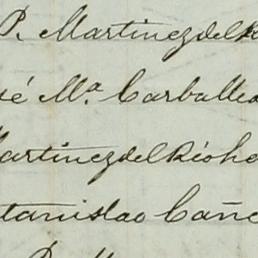 P. Martinez del R
sé Mª Carballed
Martinez del Rio he
stanislao Cañe